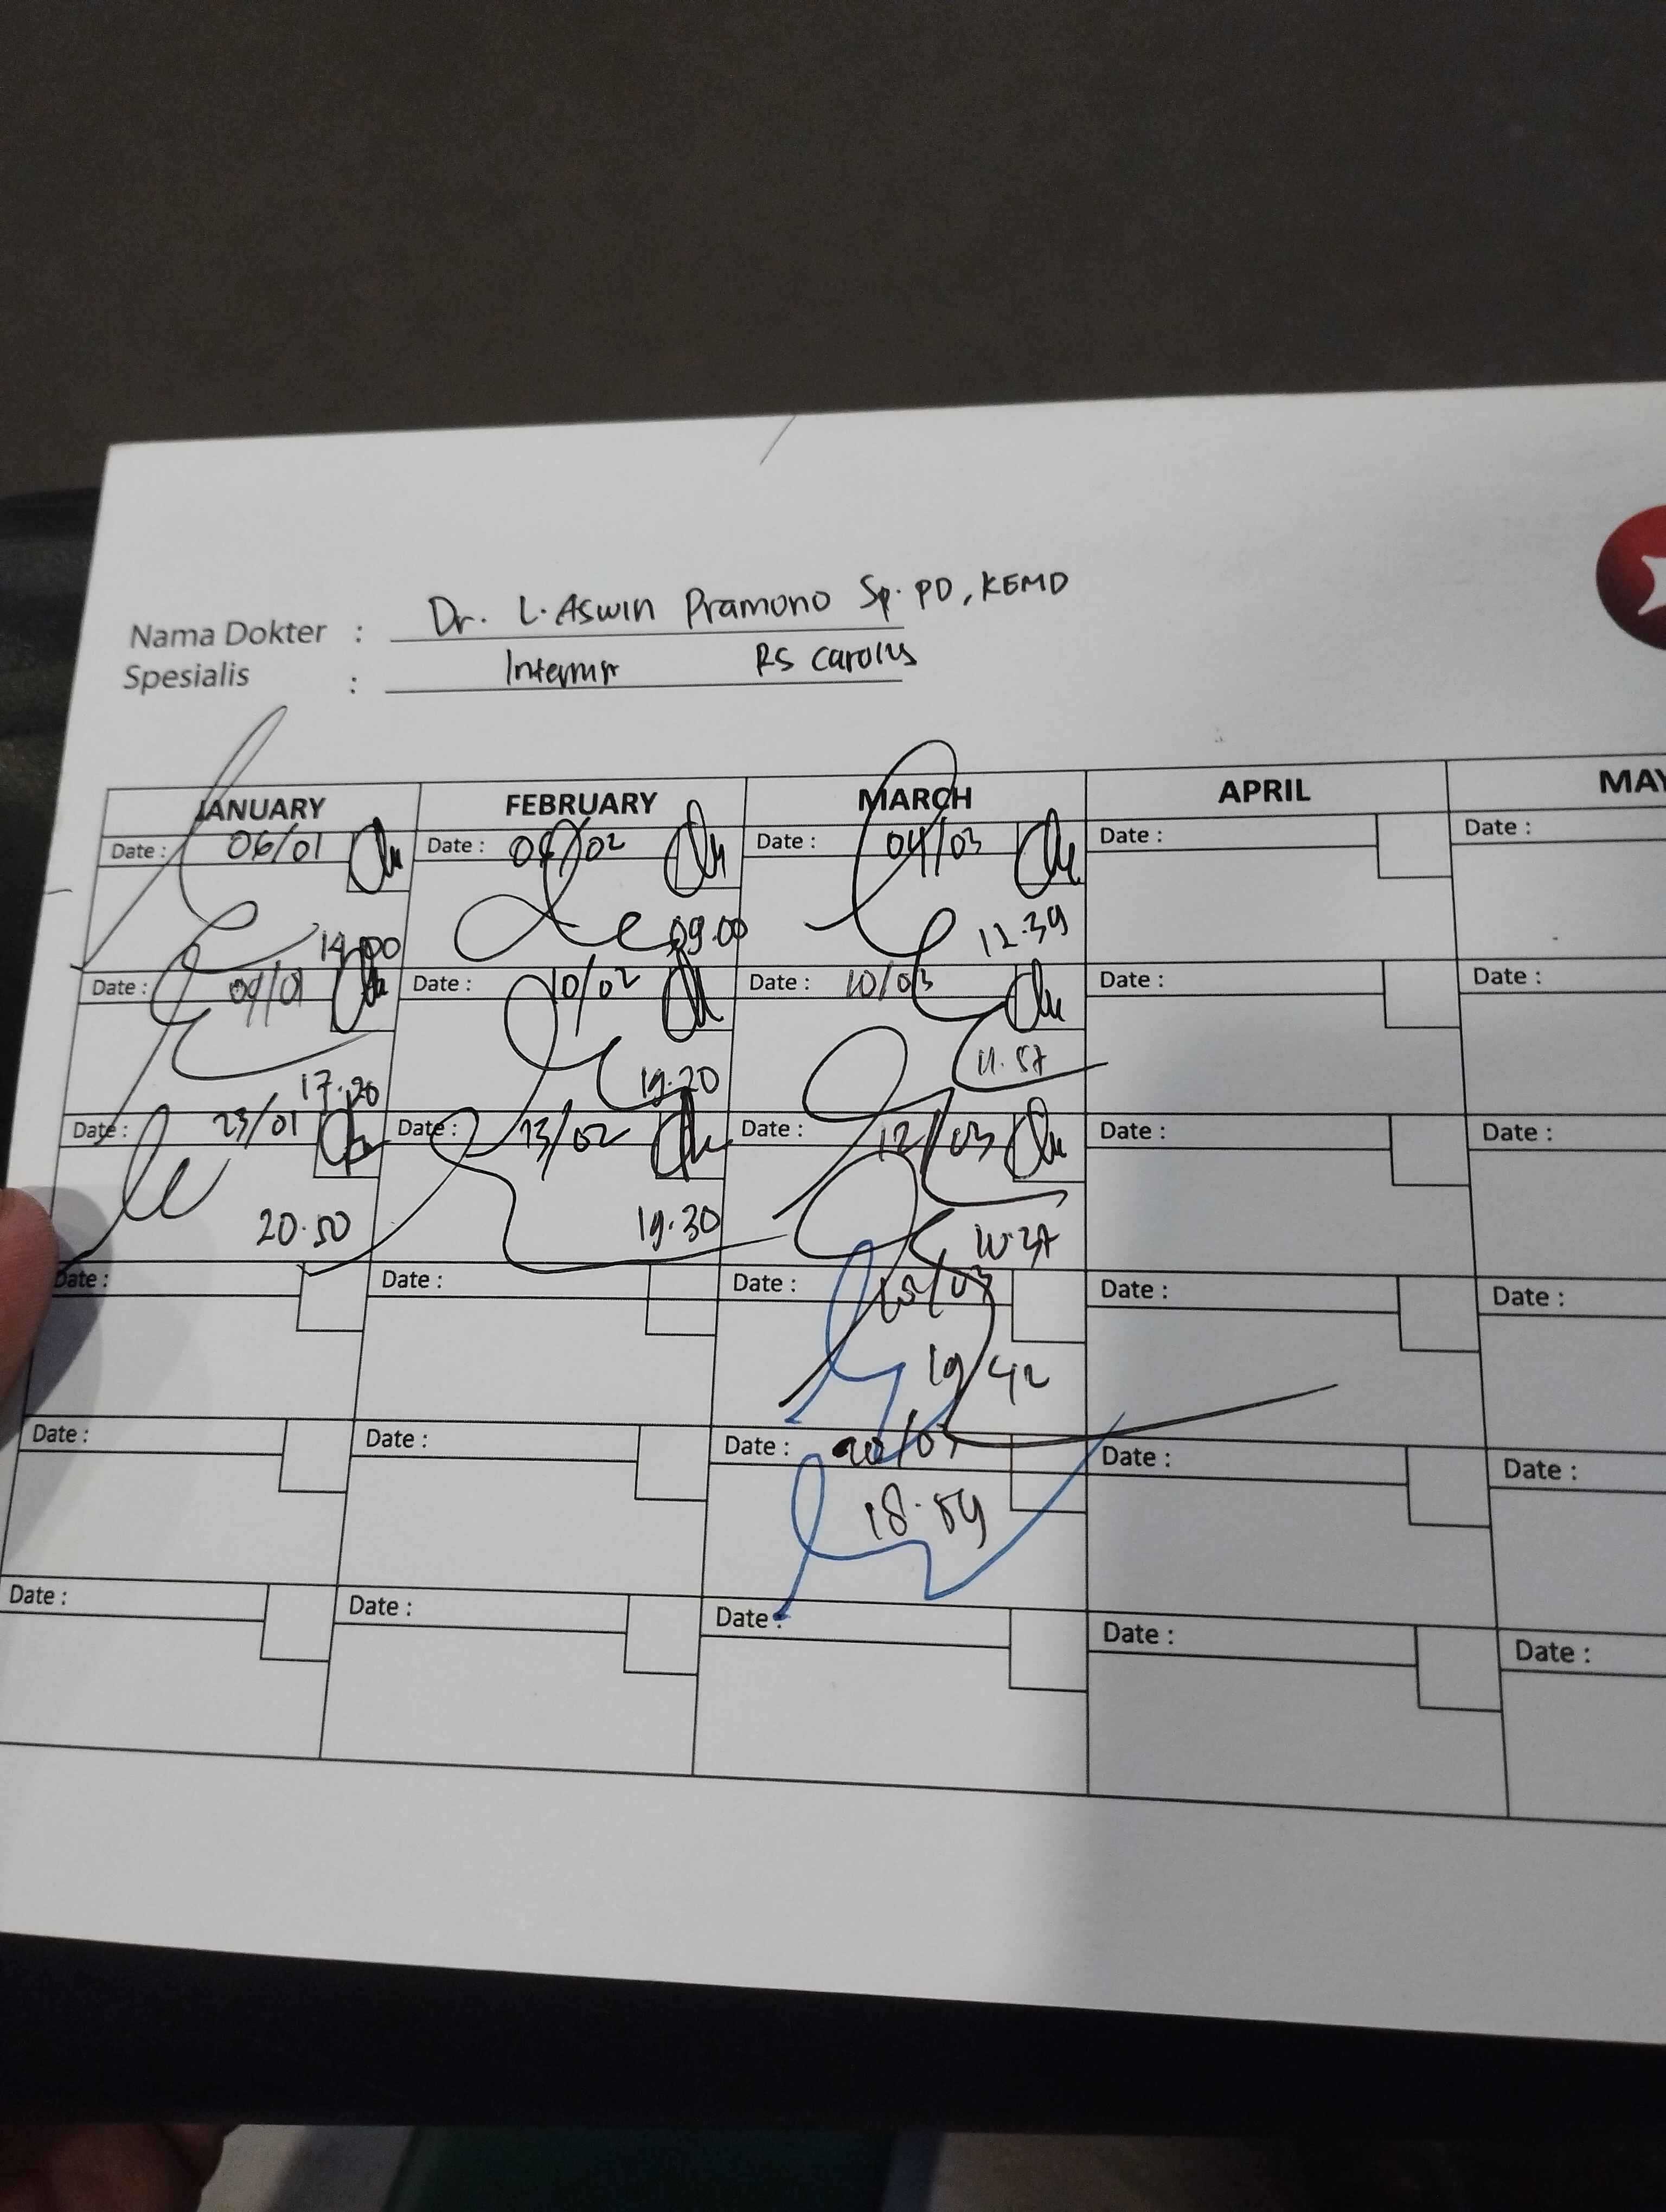 Nama Dokter : Dr. L. Aswin Pramono Sp. PD, KEMD
Spesialis : RS Carolus
JANUARY FEBRUARY MARCH APRIL MAY
Date : 06/01 Date : Date : 04/03 Date : Date :
14.00 09.00 12.39
Date : 09/01 Date : 10/02 Date : 10/03 Date : Date :
17.20 19.20 11.57
Date : 23/01 Date : 13/02 Date : 12/03 Date : Date :
20.50 19.30
Date : Date : Date : Date : Date :
19/42
Date : Date : Date : Date : Date :
18.59
Date : Date : Date : Date : Date :